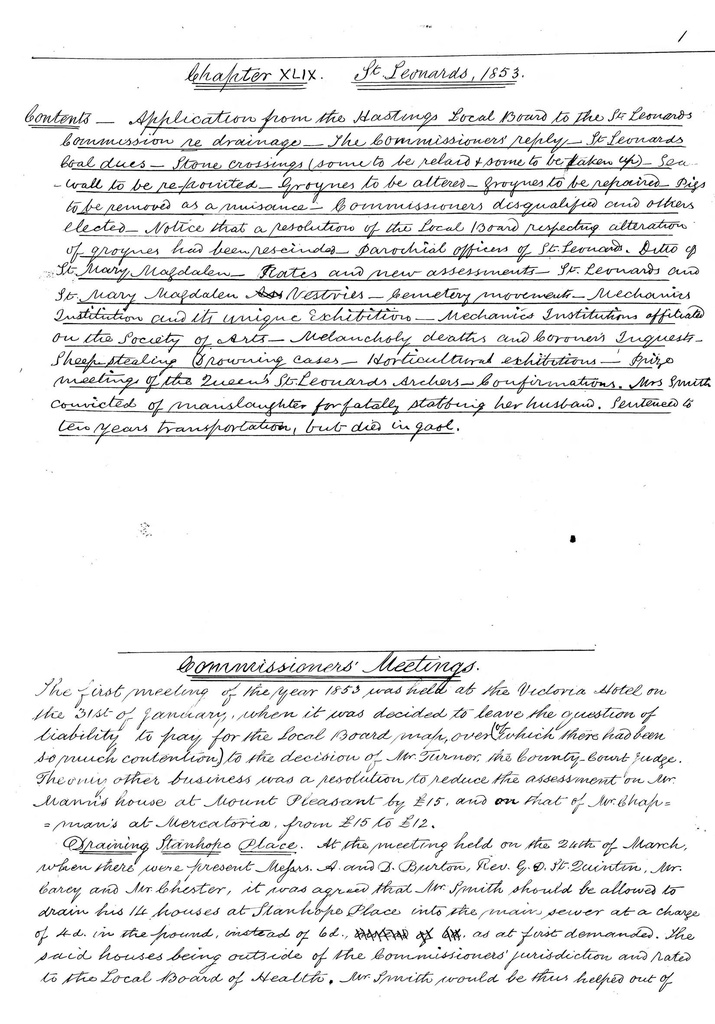 1
Chapter XLIX. St. Leonards, 1853.
Contents — Application from the Hastings Local Board to the St Leonards
Commission re drainage — The Commissioners' reply — St Leonards
Coal dues — Stone crossings (some to be relaid & some to be taken up) — Sea
-wall to be re-pointed — Groynes to be altered — Groynes to be repaired — Pigs
to be removed as a nuisance — Commissioners disqualified and others
elected — Notice that a resolution of the Local Board respecting alteration
of groynes had been rescinded — Parochial officers of St Leonard. Ditto of
St. Mary Magdalen — Rates and new assessments — St. Leonards and
St. Mary Magdalen Vestries — Cemetery movements — Mechanics
Institution and its unique Exhibition — Mechanics Institutions affiliated
on the Society of Arts — Melancholy deaths and Coroner's Inquests —
Sheep stealing Drowning cases — Horticultural exhibitions — Prize
meeting of the Queen's St Leonards Archers — Confirmations. Mrs Smith
convicted of manslaughter for fatally stabbing her husband. Sentenced to
ten years transportation, but died in gaol.
Commissioners' Meetings.
The first meeting of the year 1853 was held at the Victoria Hotel on
the 31st of January, when it was decided to leave the question of
liability to pay for the Local Board map, over (of which there had been
so much contention) to the decision of Mr. Turner, the County-Court judge.
The only other business was a resolution to reduce the assessment on Mr.
Mann's house at Mount Pleasant by £15, and on that of Mr. Chap=
=man's at Mercatoria, from £15 to £12.
Draining Stanhope Place. At the meeting held on the 24th of March,
when there were present Messrs. A. and D. Burton, Rev. G. D. St. Quintin, Mr.
Carey and Mr. Chester, it was agreed that Mr. Smith should be allowed to
drain his 14 houses at Stanhope Place into the main sewer at a charge
of 4d. in the pound, instead of 6d., as at first demanded. The
said houses being outside of the Commissioners' jurisdiction and rated
to the Local Board of Health. Mr. Smith would be thus helped out of